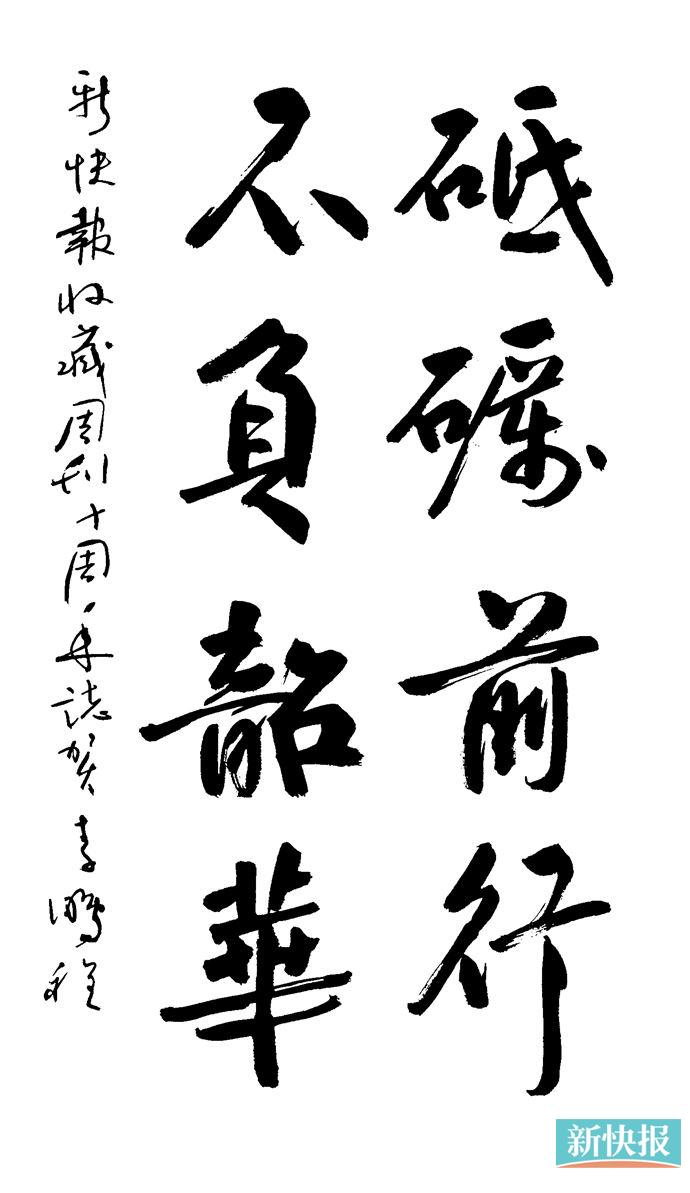 砥礪前行
不負韶華
新快報收藏周刊十周年誌贺 李鵬程
新快报